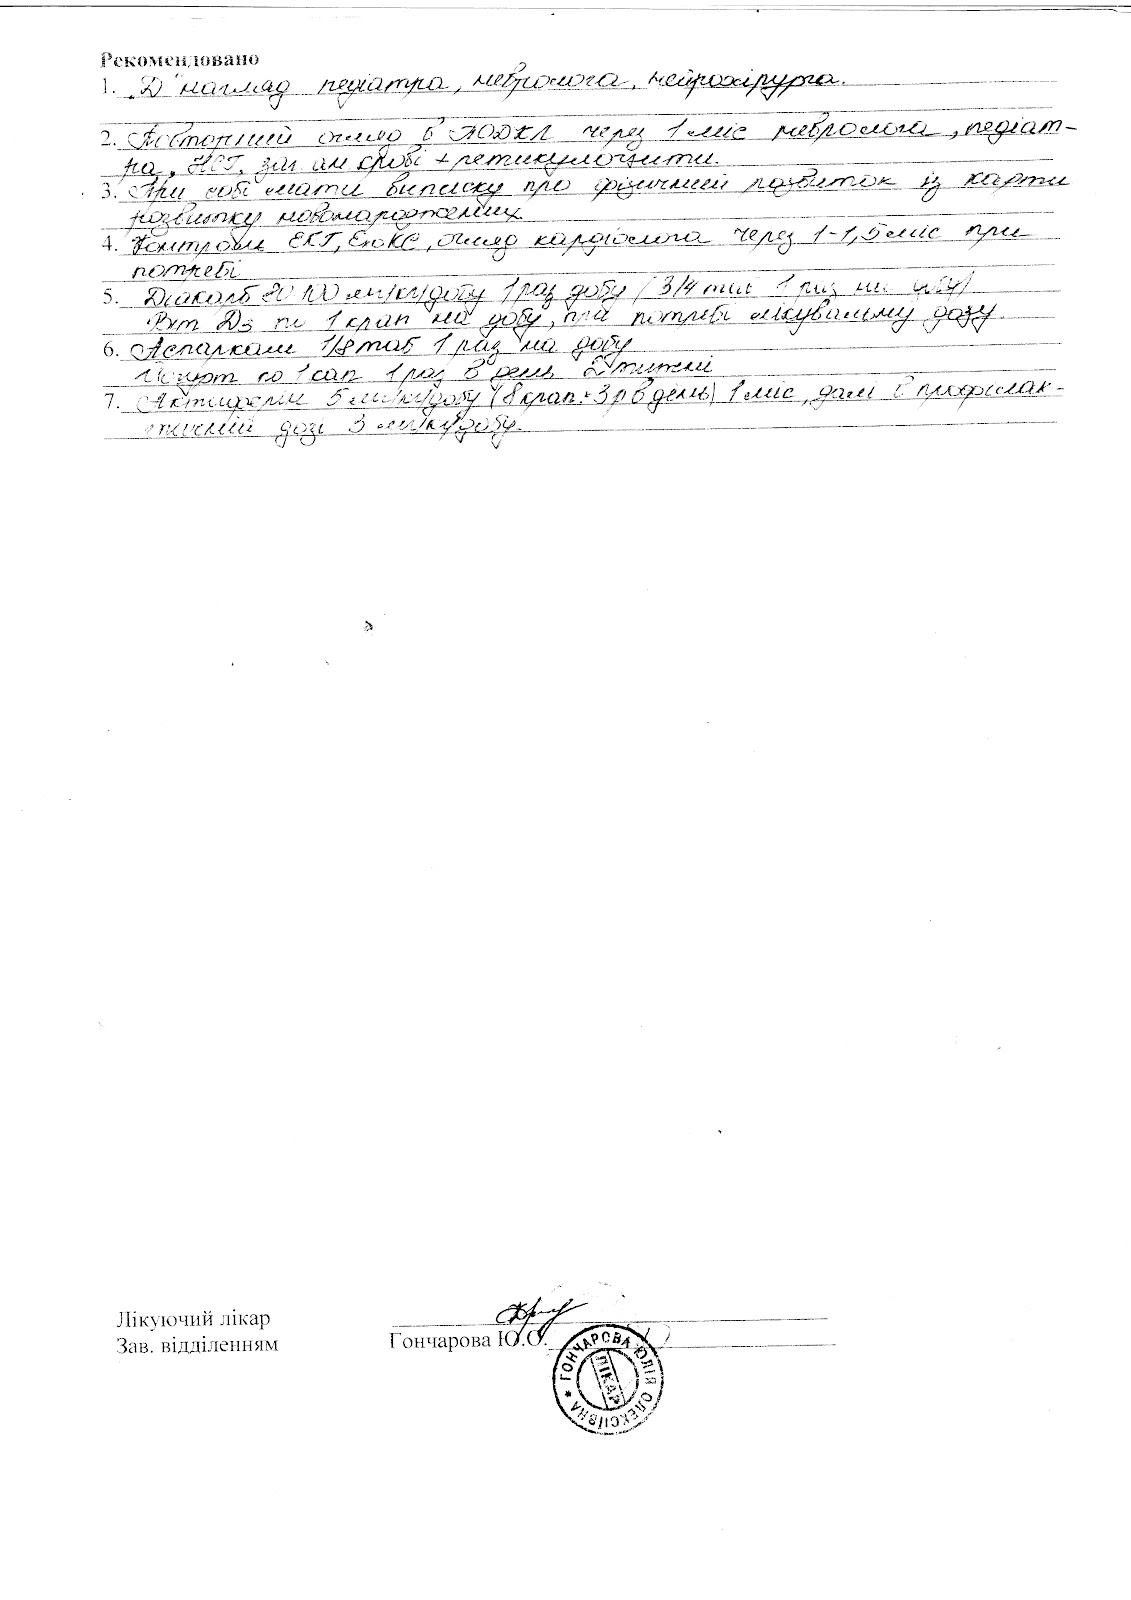 Рекомендовано
1. "Д" нагляд педіатра, невролога, нейрохірурга.
2. Повторний огляд в ПОДКЛ через 1 міс невролога, педіат-
ра, НСГ, заг. ан крові + ретикулоцити.
3. При собі мати виписку про фізичний розвиток із карти
розвитку новонароджених
4. Контроль ЕКГ, ЕхоКС, огляд кардіолога через 1-1,5 міс при
потребі
5. Діакарб 80 100 мг/кг/добу 1 раз добу (3/4 1 раз на добу)
Віт Д3 по 1 крап на добу, при потребі лікувальну дозу.
6. Аспаркам 1/8 таб 1 раз на добу
Йогурт по 1 кап 1 раз в день 2 тижні
7. Актиферин 5 мг/кг/добу (8 крап. 3 р в день) 1 міс, далі в профілак-
тичній дозі 3 мг/кг/добу.
Лікуючий лікар
Зав. відділенням Гончарова Ю.О.
* ГОНЧАРОВА ЮЛІЯ ОЛЕКСІЇВНА
ЛІКАР